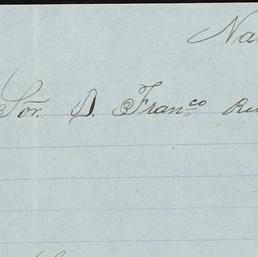 Na
Sor. D. Franco Ri